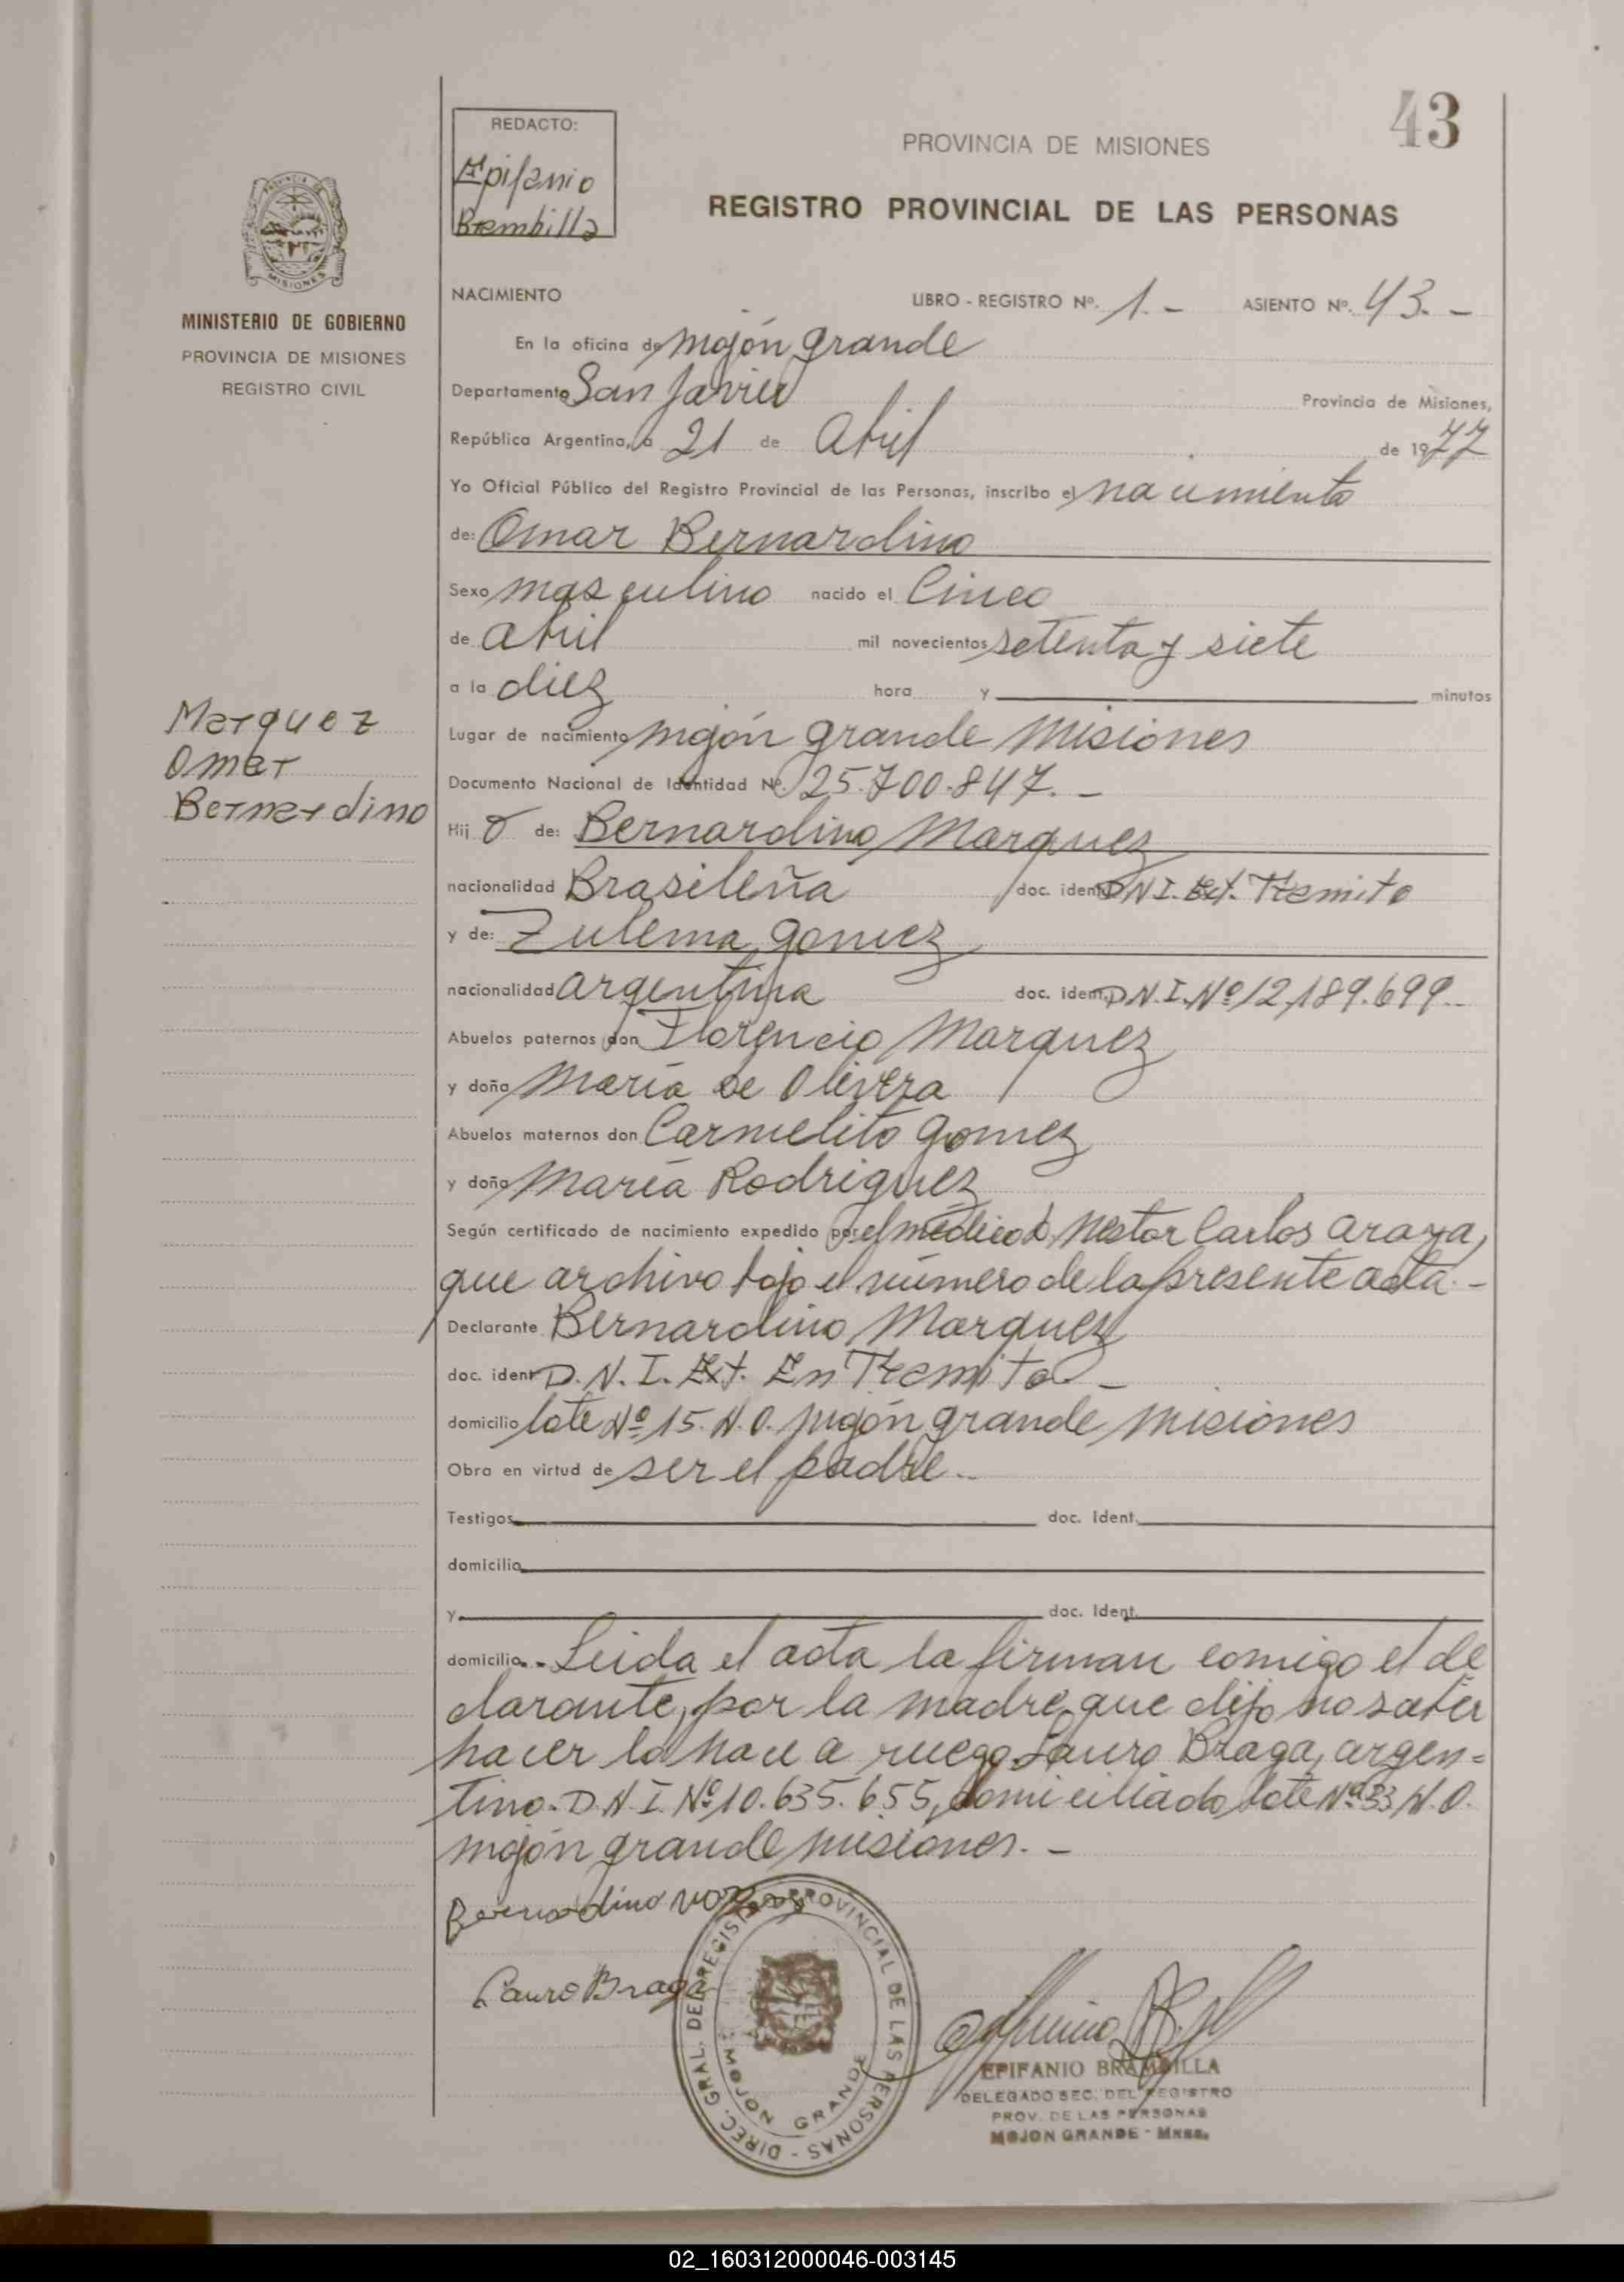 43
REDACTO:
Epifanio
Brambilla
PROVINCIA DE MISIONES
REGISTRO PROVINCIAL DE LAS PERSONAS
PROVINCIA DE
MISIONES
MINISTERIO DE GOBIERNO
PROVINCIA DE MISIONES
REGISTRO CIVIL
NACIMIENTO LIBRO - REGISTRO Nº. 1.- ASIENTO Nº. 43.-
En la oficina de mojón grande
Departamento San Javier Provincia de Misiones,
República Argentina, a 21 de Abril de 1977
Yo Oficial Público del Registro Provincial de las Personas, inscribo el nacimiento
de: Omar Bernardino
Sexo masculino nacido el Cinco
de abril mil novecientos setenta y siete
a la diez hora y minutos
Marquez
Omar
Bernardino
Lugar de nacimiento mojón grande Misiones
Documento Nacional de Identidad Nº. 25.700.847.-
Hij o de: Bernardino Marquez
nacionalidad Brasileña doc. ident. D N I. Ext. Tramite
y de: Zulema gomez
nacionalidad argentina doc. ident. D.N.I. Nº 12.189.699
Abuelos paternos don Florencio Marquez
y doña María de Olivera
Abuelos maternos don Carmelito gomez
y doña María Rodriguez
Según certificado de nacimiento expedido por el médico D. Nestor Carlos Araya,
que archivo bajo el número de la presente acta.-
Declarante Bernardino Marquez
doc. ident D. N. I. Ext. En Tramite -
domicilio lote Nº 15. N.O. mojón grande Misiones
Obra en virtud de ser el padre.-
Testigos doc. Ident.
domicilio
y doc. Ident.
domicilio.- Leida el acta la firman comigo el de
clarante, por la madre que dijo no saber
hacer lo hace a ruego Lauro Braga, argen=
tino. D.N.I. Nº 10.635.655, domiciliado lote Nº 33 N.O.
mojón grande misiones.-
Bernardino
Lauro Braga
DIREC. GRAL. DEL REGISTRO PROVINCIAL DE LAS PERSONAS -
MOJON GRANDE
EPIFANIO BRAMBILLA
DELEGADO SEC. DEL REGISTRO
PROV. DE LAS PERSONAS
MOJON GRANDE - Mnes.
02_160312000046-003145